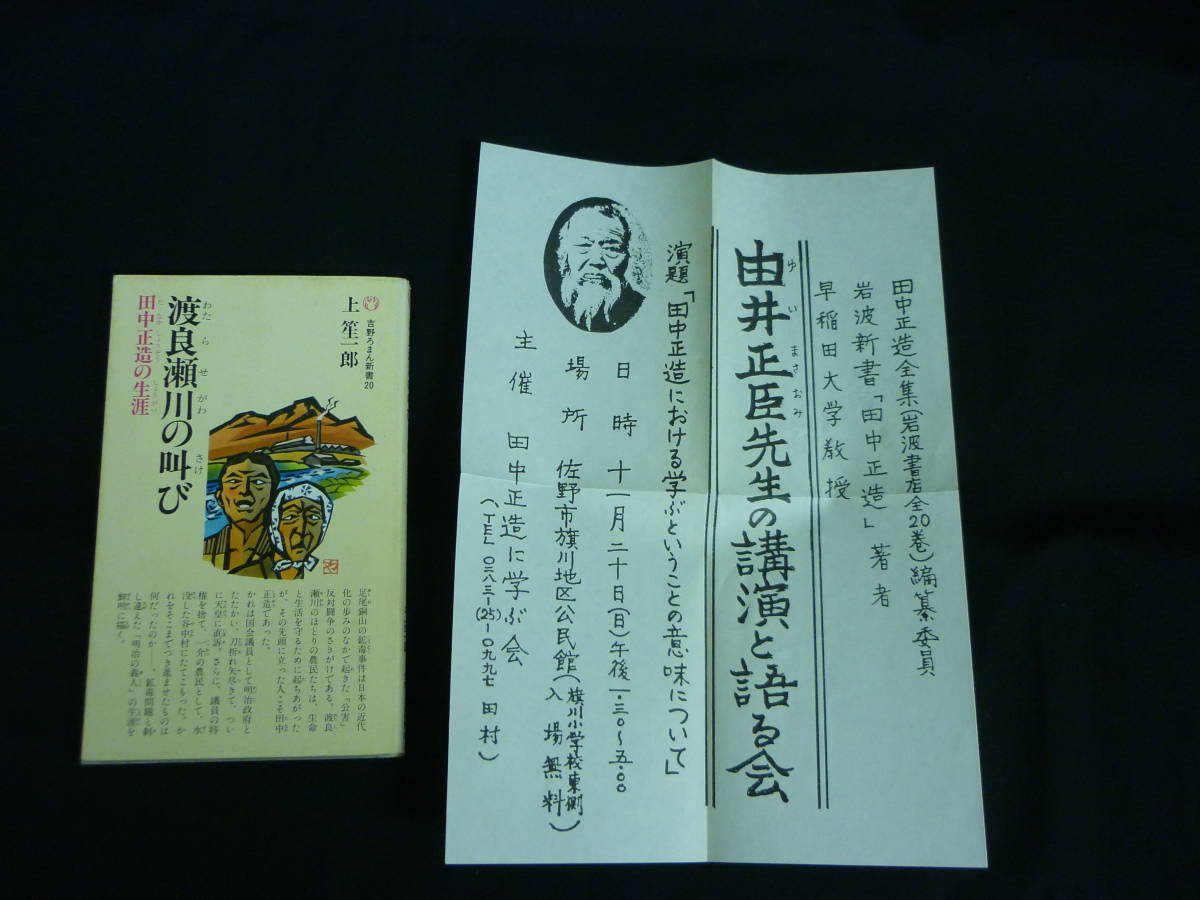 吉野ろまん新書20
上 笙一郎
渡良瀬川の叫び
わたらせがわ
さけ
田中正造の生涯
たなかしょうぞう
しょうがい
足尾銅山の鉱毒事件は日本の近代
化の歩みのなかで起きた「公害」
反対闘争のさきがけである。渡良
瀬川のほとりの農民たちは、生命
と生活を守るために起ちあがった
が、その先頭に立った人こそ田中
正造であった。
かれは国会議員として明治政府と
たたかい、刀折れ矢尽きて、つい
に天皇に直訴。さらに、議員の特
権を捨て、一介の農民として、水
没した谷中村にたてこもった。か
れをそこまでつき進ませたものは
何だったのか――。鉱毒問題と刺
し違えた「明治の義人」の生涯を
鮮明に描く。
田中正造全集(岩波書店全20巻)編纂委員
岩波新書「田中正造」著者
早稲田大学教授
由井正臣先生の講演と語る会
ゆいまさおみ
演題「田中正造における学ぶということの意味について」
日時 十一月二十日(日)午後一・三〇〜五・〇〇
場所 佐野市旗川地区公民館(旗川小学校東側
入場無料)
主催 田中正造に学ぶ会
(TEL 〇二八三-(25)-〇九九七 田村)